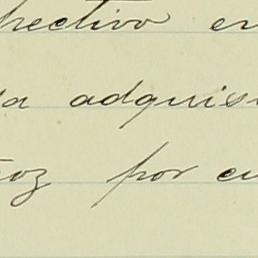 pectivo en
la adquisi
oz por cu